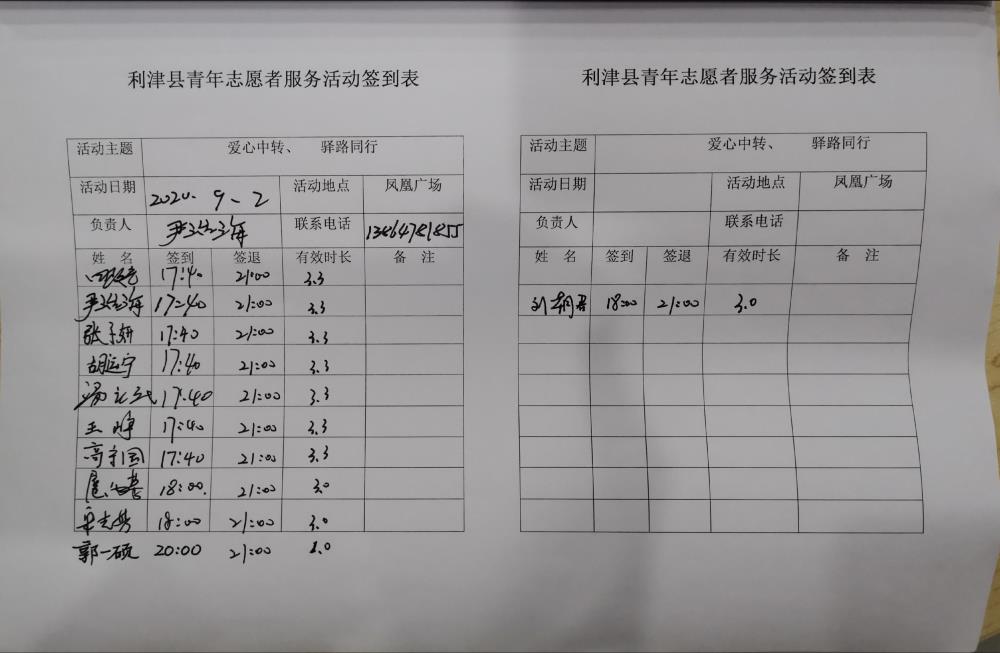 利津县青年志愿者服务活动签到表
活动主题 爱心中转、 驿路同行
活动日期 2020.9.2 活动地点 凤凰广场
负责人 联系电话 13864781855
姓 名 签到 签退 有效时长 备 注
17:40 21:00 3.3
17:40 21:00 3.3
张子妍 17:40 21:00 3.3
胡运宁 17:40 21:00 3.3
17:40 21:00 3.3
王 17:40 21:00 3.3
高 国 17:40 21:00 3.3
18:00 21:00 3.0
18:00 21:00 3.0
郭一硕 20:00 21:00 1.0
利津县青年志愿者服务活动签到表
活动主题 爱心中转、 驿路同行
活动日期 活动地点 凤凰广场
负责人 联系电话
姓 名 签到 签退 有效时长 备 注
刘 18:00 21:00 3.0